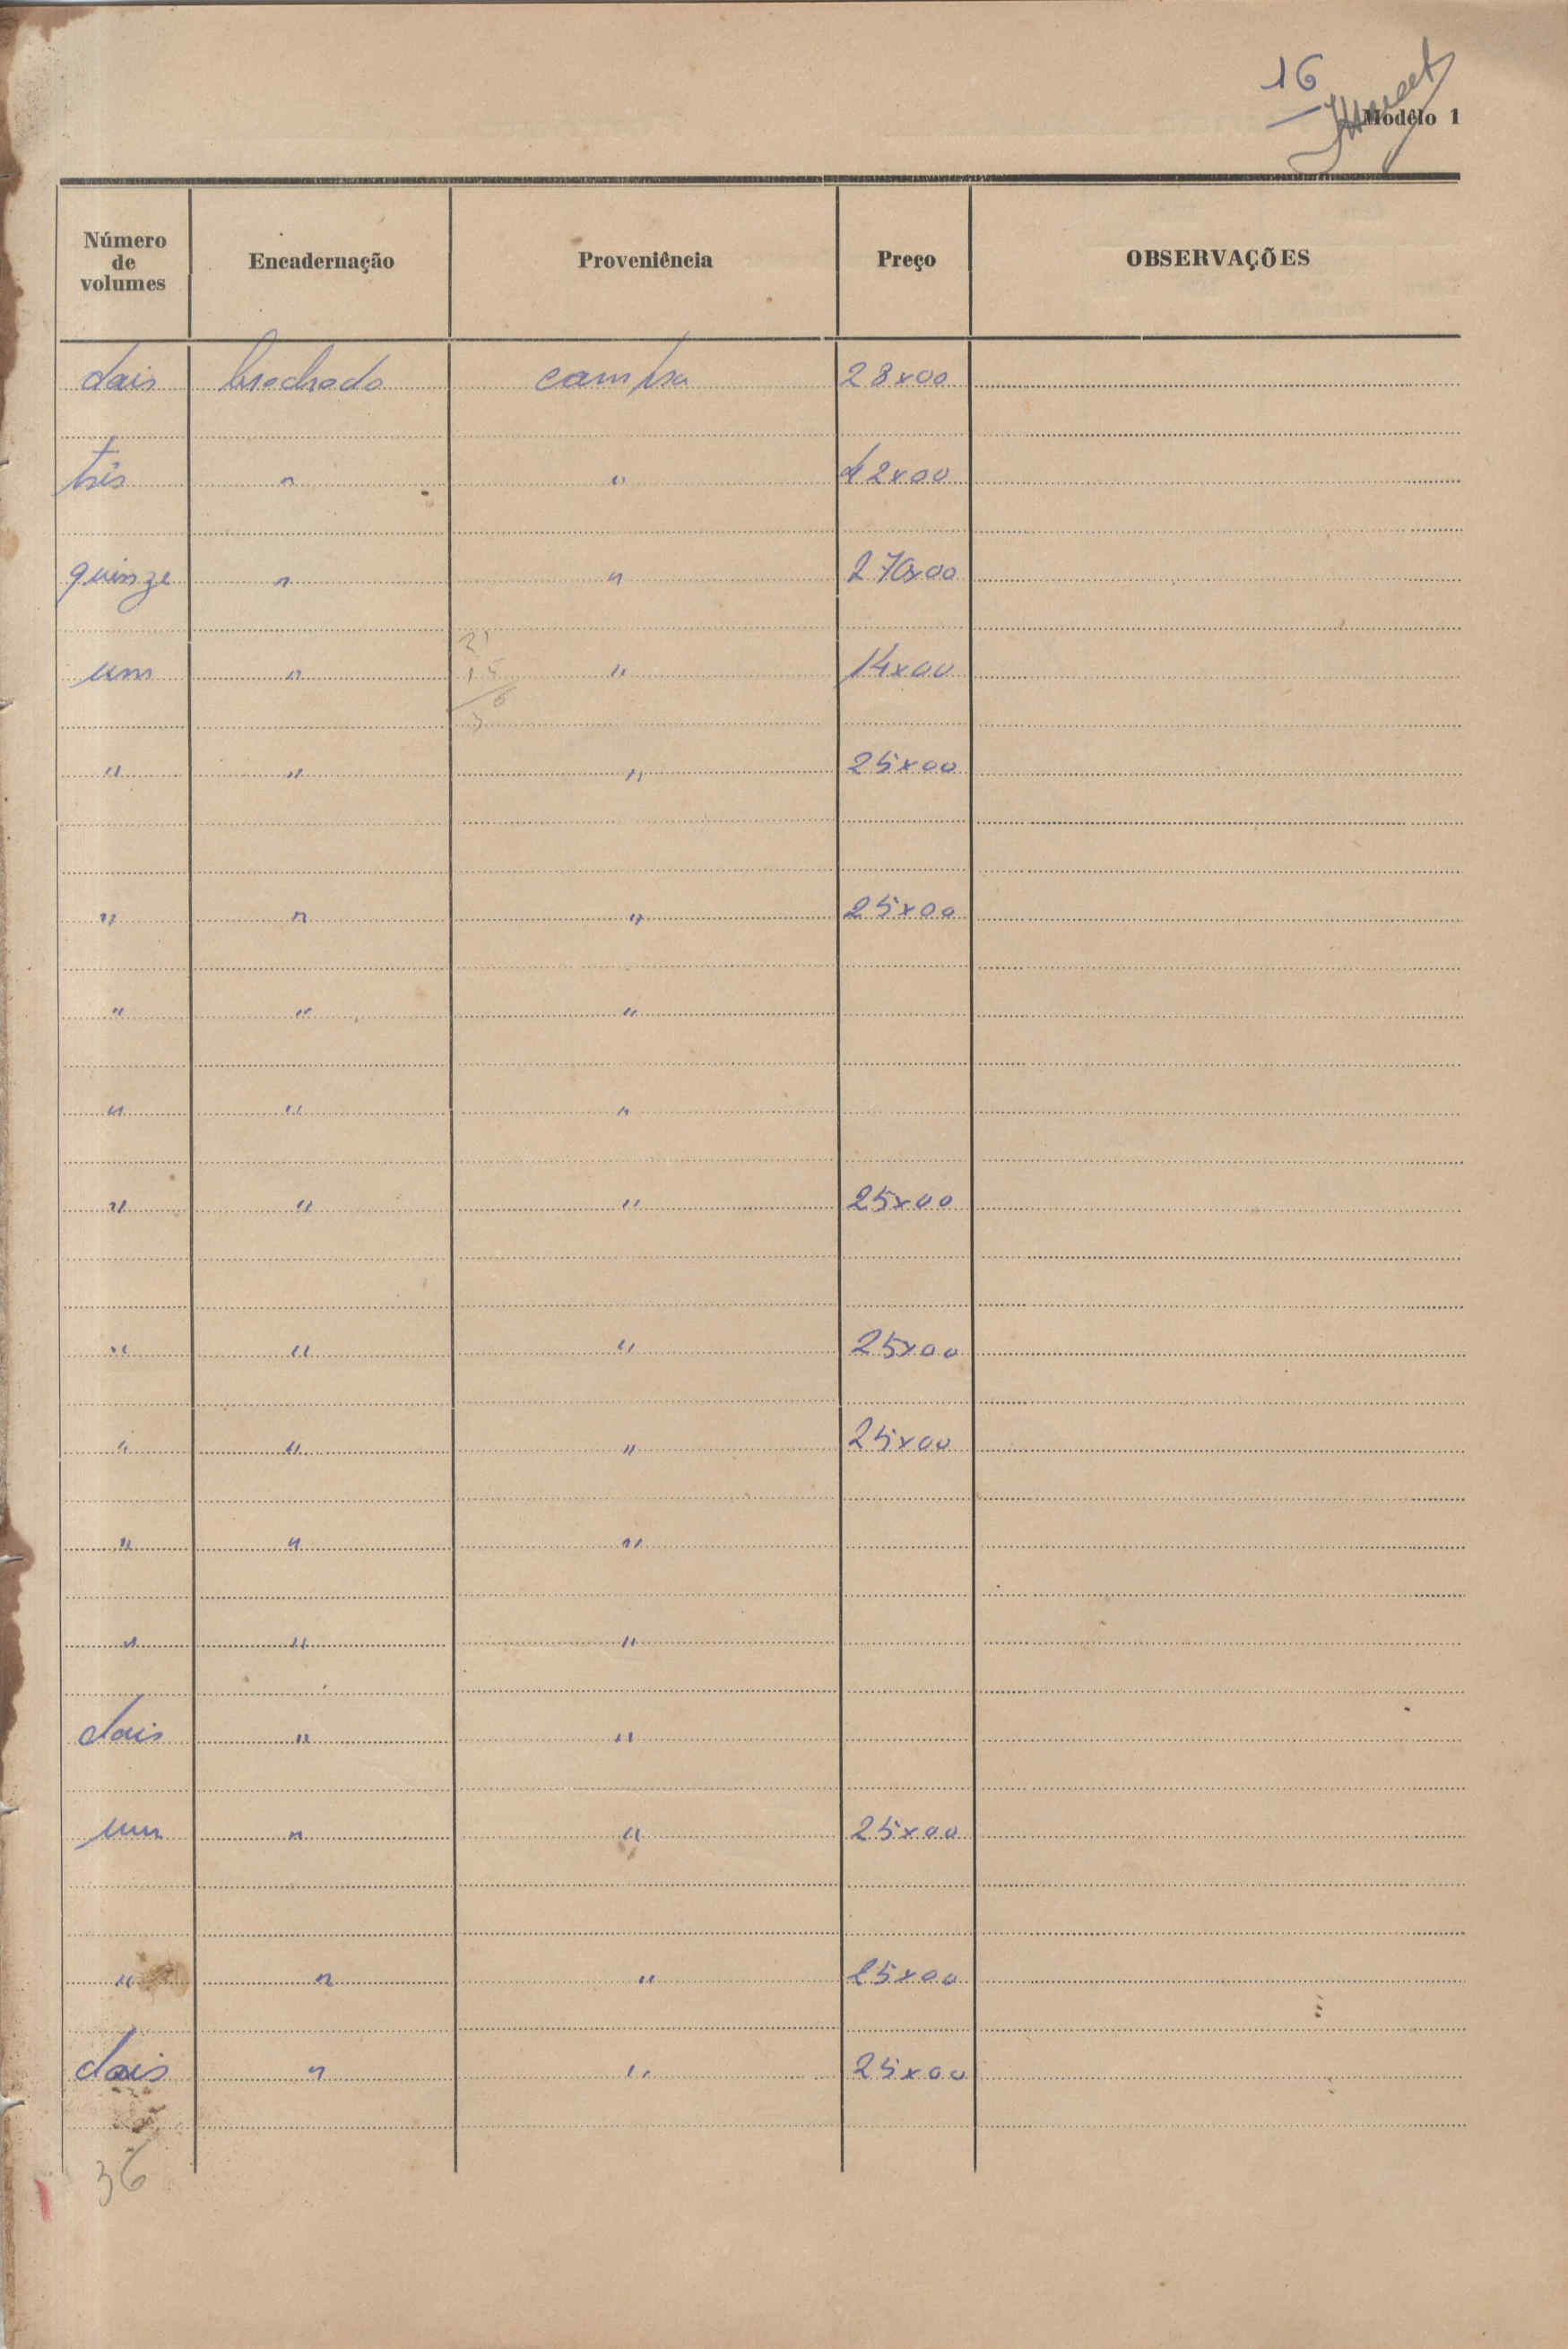 16
Modêlo 1
Número de volumes Encadernação Proveniência Preço OBSERVAÇÕES
dois brochado compra 28x00
três " " 42x00
quinze " " 270x00
21
um " " 14x00
15
36
" " " 25x00
" " " 25x00
" " "
" " "
" " " 25x00
" " " 25x00
" " " 25x00
" " "
" " "
dois " "
um " " 25x00
" " " 25x00
dois " " 25x00
36